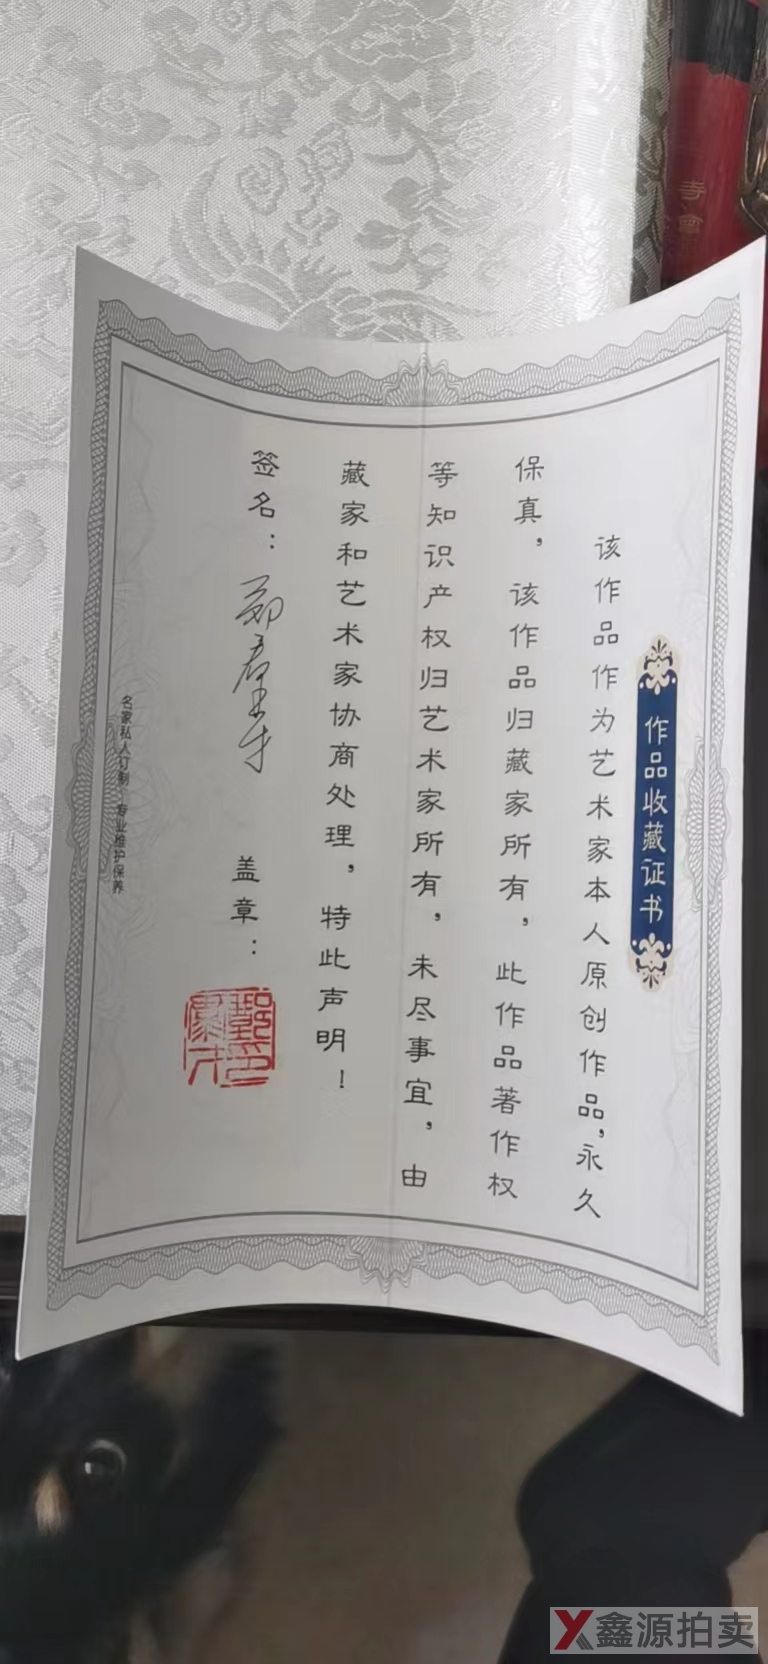 作品收藏证书
该作品作为艺术家本人原创作品，永久
保真，该作品归藏家所有，此作品著作权
等知识产权归艺术家所有，未尽事宜，由
藏家和艺术家协商处理，特此声明！
签名：
盖章：
名家私人订制 专业维护保养
鑫源拍卖